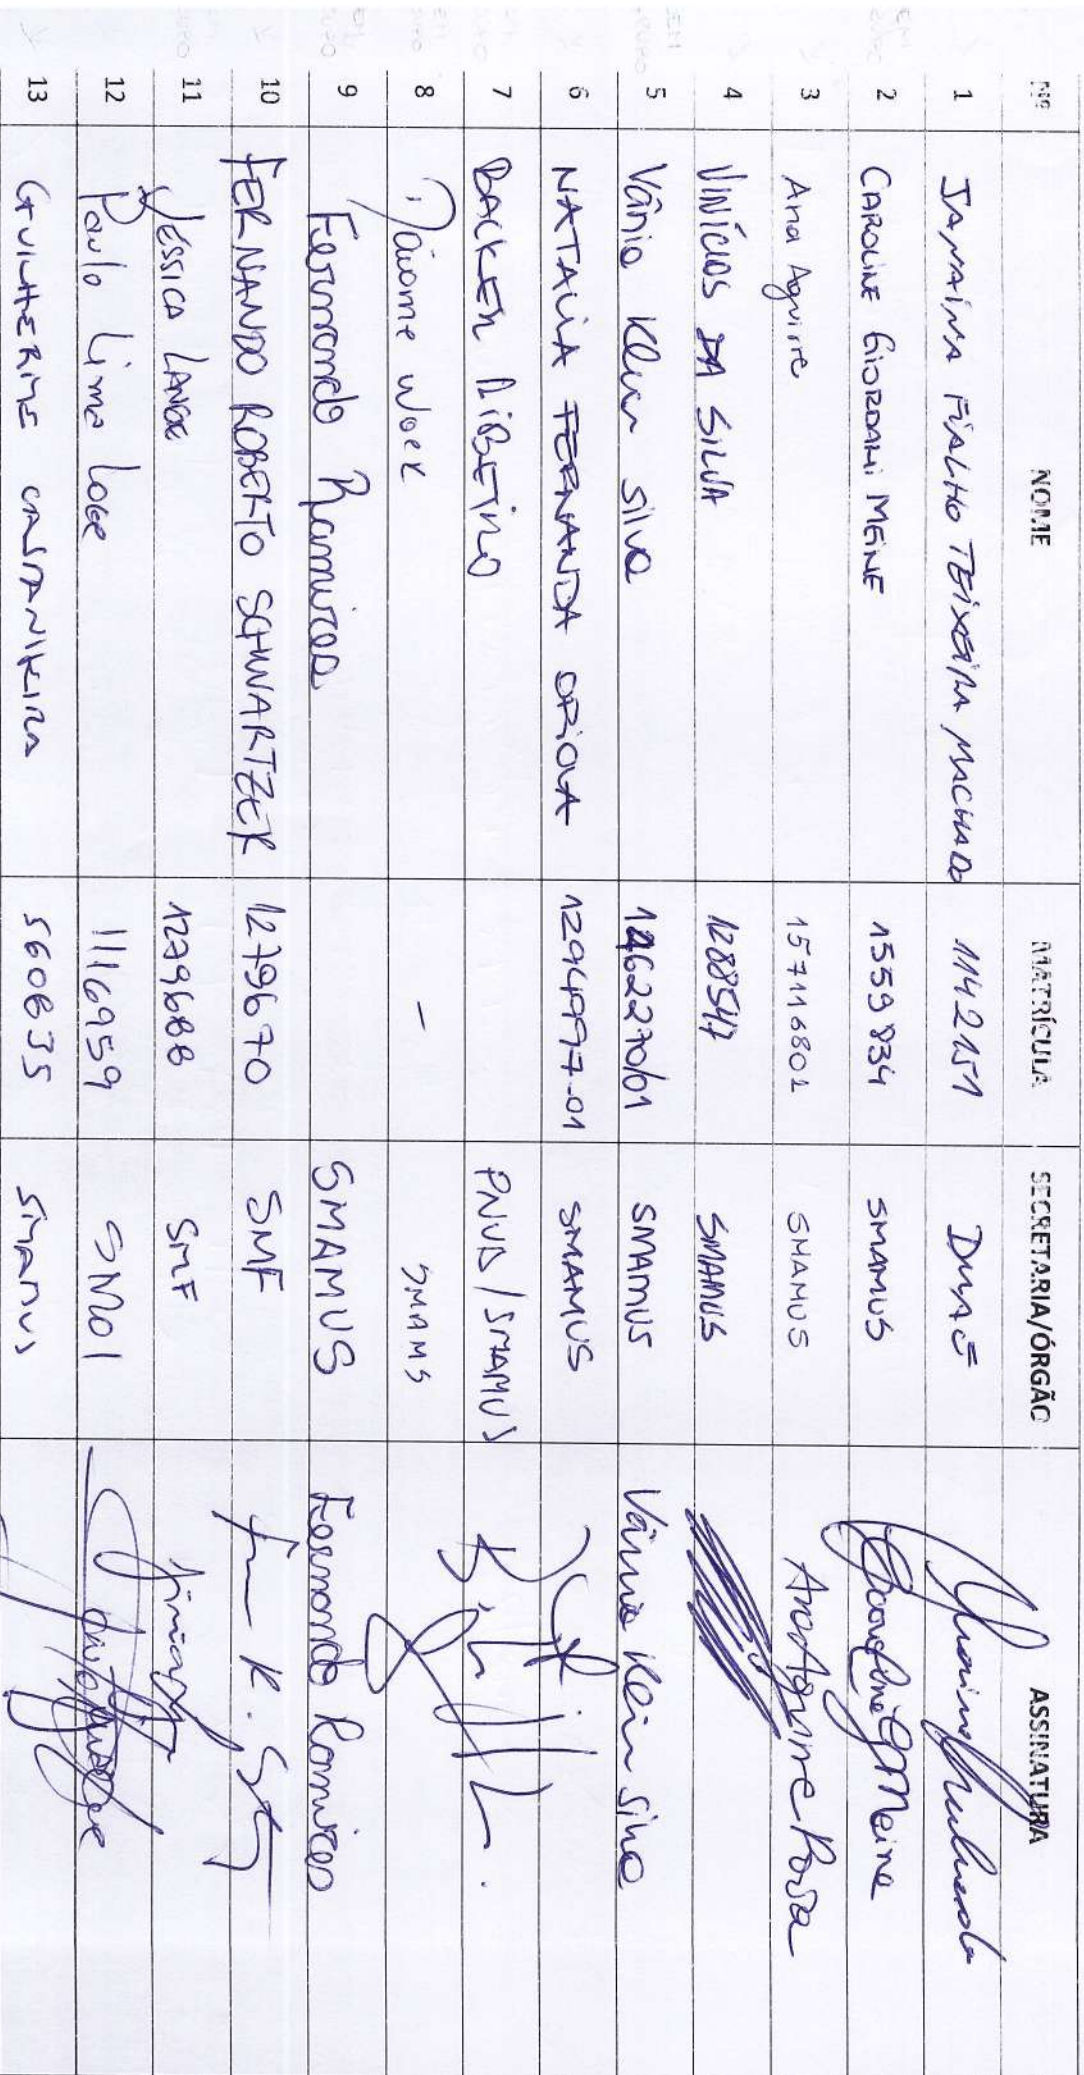 Nº NOME MATRÍCULA SECRETARIA/ÓRGÃO ASSINATURA
1 JANAÍNA FIALHO TEIXEIRA MACHADO 1142151 DMAE
2 CAROLINE GIORDANI MEINE 1559834 SMAMUS Caroline G Meine
3 Ana Aguirre 157116802 SMAMUS Ana Aguirre Rosa
4 VINÍCIUS DA SILVA 1288547 SMAMUS
5 Vânia Klein Silva 1462270/01 SMAMUS Vânia Klein Silva
6 NATALIA FERNANDA ORIOLA 1294997-01 SMAMUS
7 RIBEIRO PNUD/SMAMUS
8 - SMAMS
9 Fernanda Ramires SMAMUS Fernanda Ramires
10 FERNANDO ROBERTO SCHWARTZER 1279670 SMF
11 JÉSSICA LANGE 1279688 SMF
12 Paulo Lima Loge 1116959 SMOI
13 GUILHERME 560835 SMAMUS